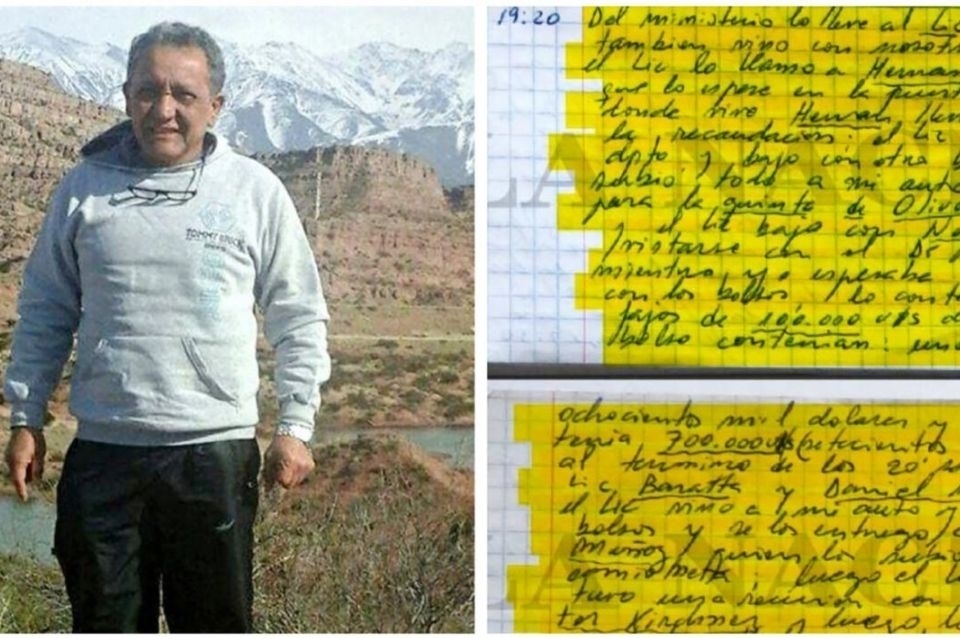 TOMMY
19:20 Del ministerio lo lleve al Lic
tambien vino con nosotr
el Lic lo llamo a Hernan
que lo espere en la puert
donde vive Hernan,
la recaudacion: el Lic
dpto y bajo con otro b
subio todo a mi auto
para la quinta de Oliv
el Lic bajo con Ne
/vistarse con el Dr
mientras yo esperaba
con los bolsos, lo cont
fajos de 100.000 u$s d
bolso contenian: uno
LA NAC
ochociento mil dolares y
tenia 700.000u$s (setecientos
al termino de los 20'
Lic Baratta y Daniel
el Lic vino a mi auto y
bolsos y se los entrego
Muñoz, quien los subio
camioneta luego el L
tuvo una reunion con
tor Kirchner y luego
LA NAC